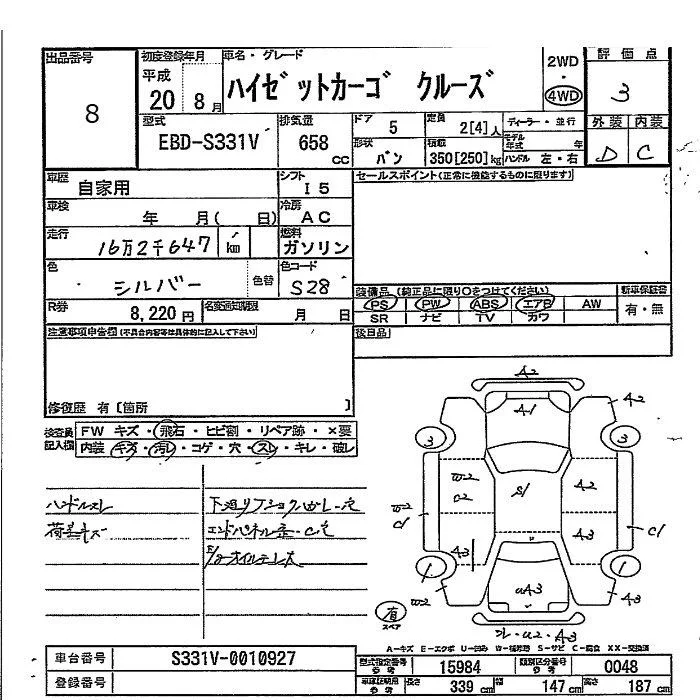 出品番号
8
初度登録年月
平成
20 8月
車名・グレード
ハイゼットカーゴ クルーズ
2WD
・
4WD
評価点
3
型式
EBD-S331V
排気量
658
cc
ドア
5
定員
2[4]人
ディーラー・並行
モデル年式 年
外装 内装
D C
形状
バン
積載
350[250]kg
ハンドル 左・右
車歴
自家用
シフト
I5
セールスポイント(正常に機能するものに限ります)
車検
年 月( 日)
冷房
AC
走行
16万2千647 km
燃料
ガソリン
色
シルバー
色替
色コード
S28
装備品 (純正品に限り○をつけてください)
新車保証書
PS PW ABS エアB AW
有・無
SR ナビ TV カワ
R券
8,220円
名変通知期限
月 日
注意事項申告欄(不具合内容等は具体的に記入して下さい)
後日品
修復歴 有〔箇所 〕
検査員記入欄
FW キズ・飛石・ヒビ割・リペア跡・×要
内装 キズ・汚レ・コゲ・穴・スレ・キレ・破レ
ハンドルスレ
下廻リ
エンドパネル
A2
A1
A2
3
3
W2
A2
S1
C1
C1
A3
A3
1
1
W2
A3
有
スペア
A-キズ E-エクボ U-凹み W-補修跡 S-サビ C-腐食 XX-交換済
車台番号
S331V-0010927
型式指定番号
参考
15984
類別区分番号
参考
0048
登録番号
車庫証明用
参考
長さ
339 cm
幅
147 cm
高さ
187 cm